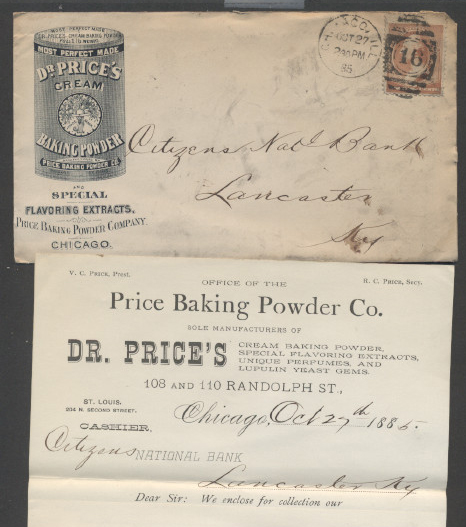 MOST PERFECT MADE
DR. PRICE'S
CREAM
BAKING POWDER
PRICE BAKING POWDER CO.
AND
SPECIAL
FLAVORING EXTRACTS.
PRICE BAKING POWDER COMPANY.
CHICAGO.
CHICAGO, ILL
OCT 27
2 30 PM
85
16
Citizens Nat'l Bank
Lancaster
Ky
V. C. PRICE, Prest.
R. C. PRICE, Secy.
OFFICE OF THE
Price Baking Powder Co.
SOLE MANUFACTURERS OF
DR. PRICE'S
CREAM BAKING POWDER,
SPECIAL FLAVORING EXTRACTS,
UNIQUE PERFUMES, AND
LUPULIN YEAST GEMS.
108 AND 110 RANDOLPH ST.,
ST. LOUIS,
204 N. SECOND STREET.
Chicago, Oct 27th 1885.
CASHIER,
Citizens NATIONAL BANK
Lancaster Ky
Dear Sir: We enclose for collection our